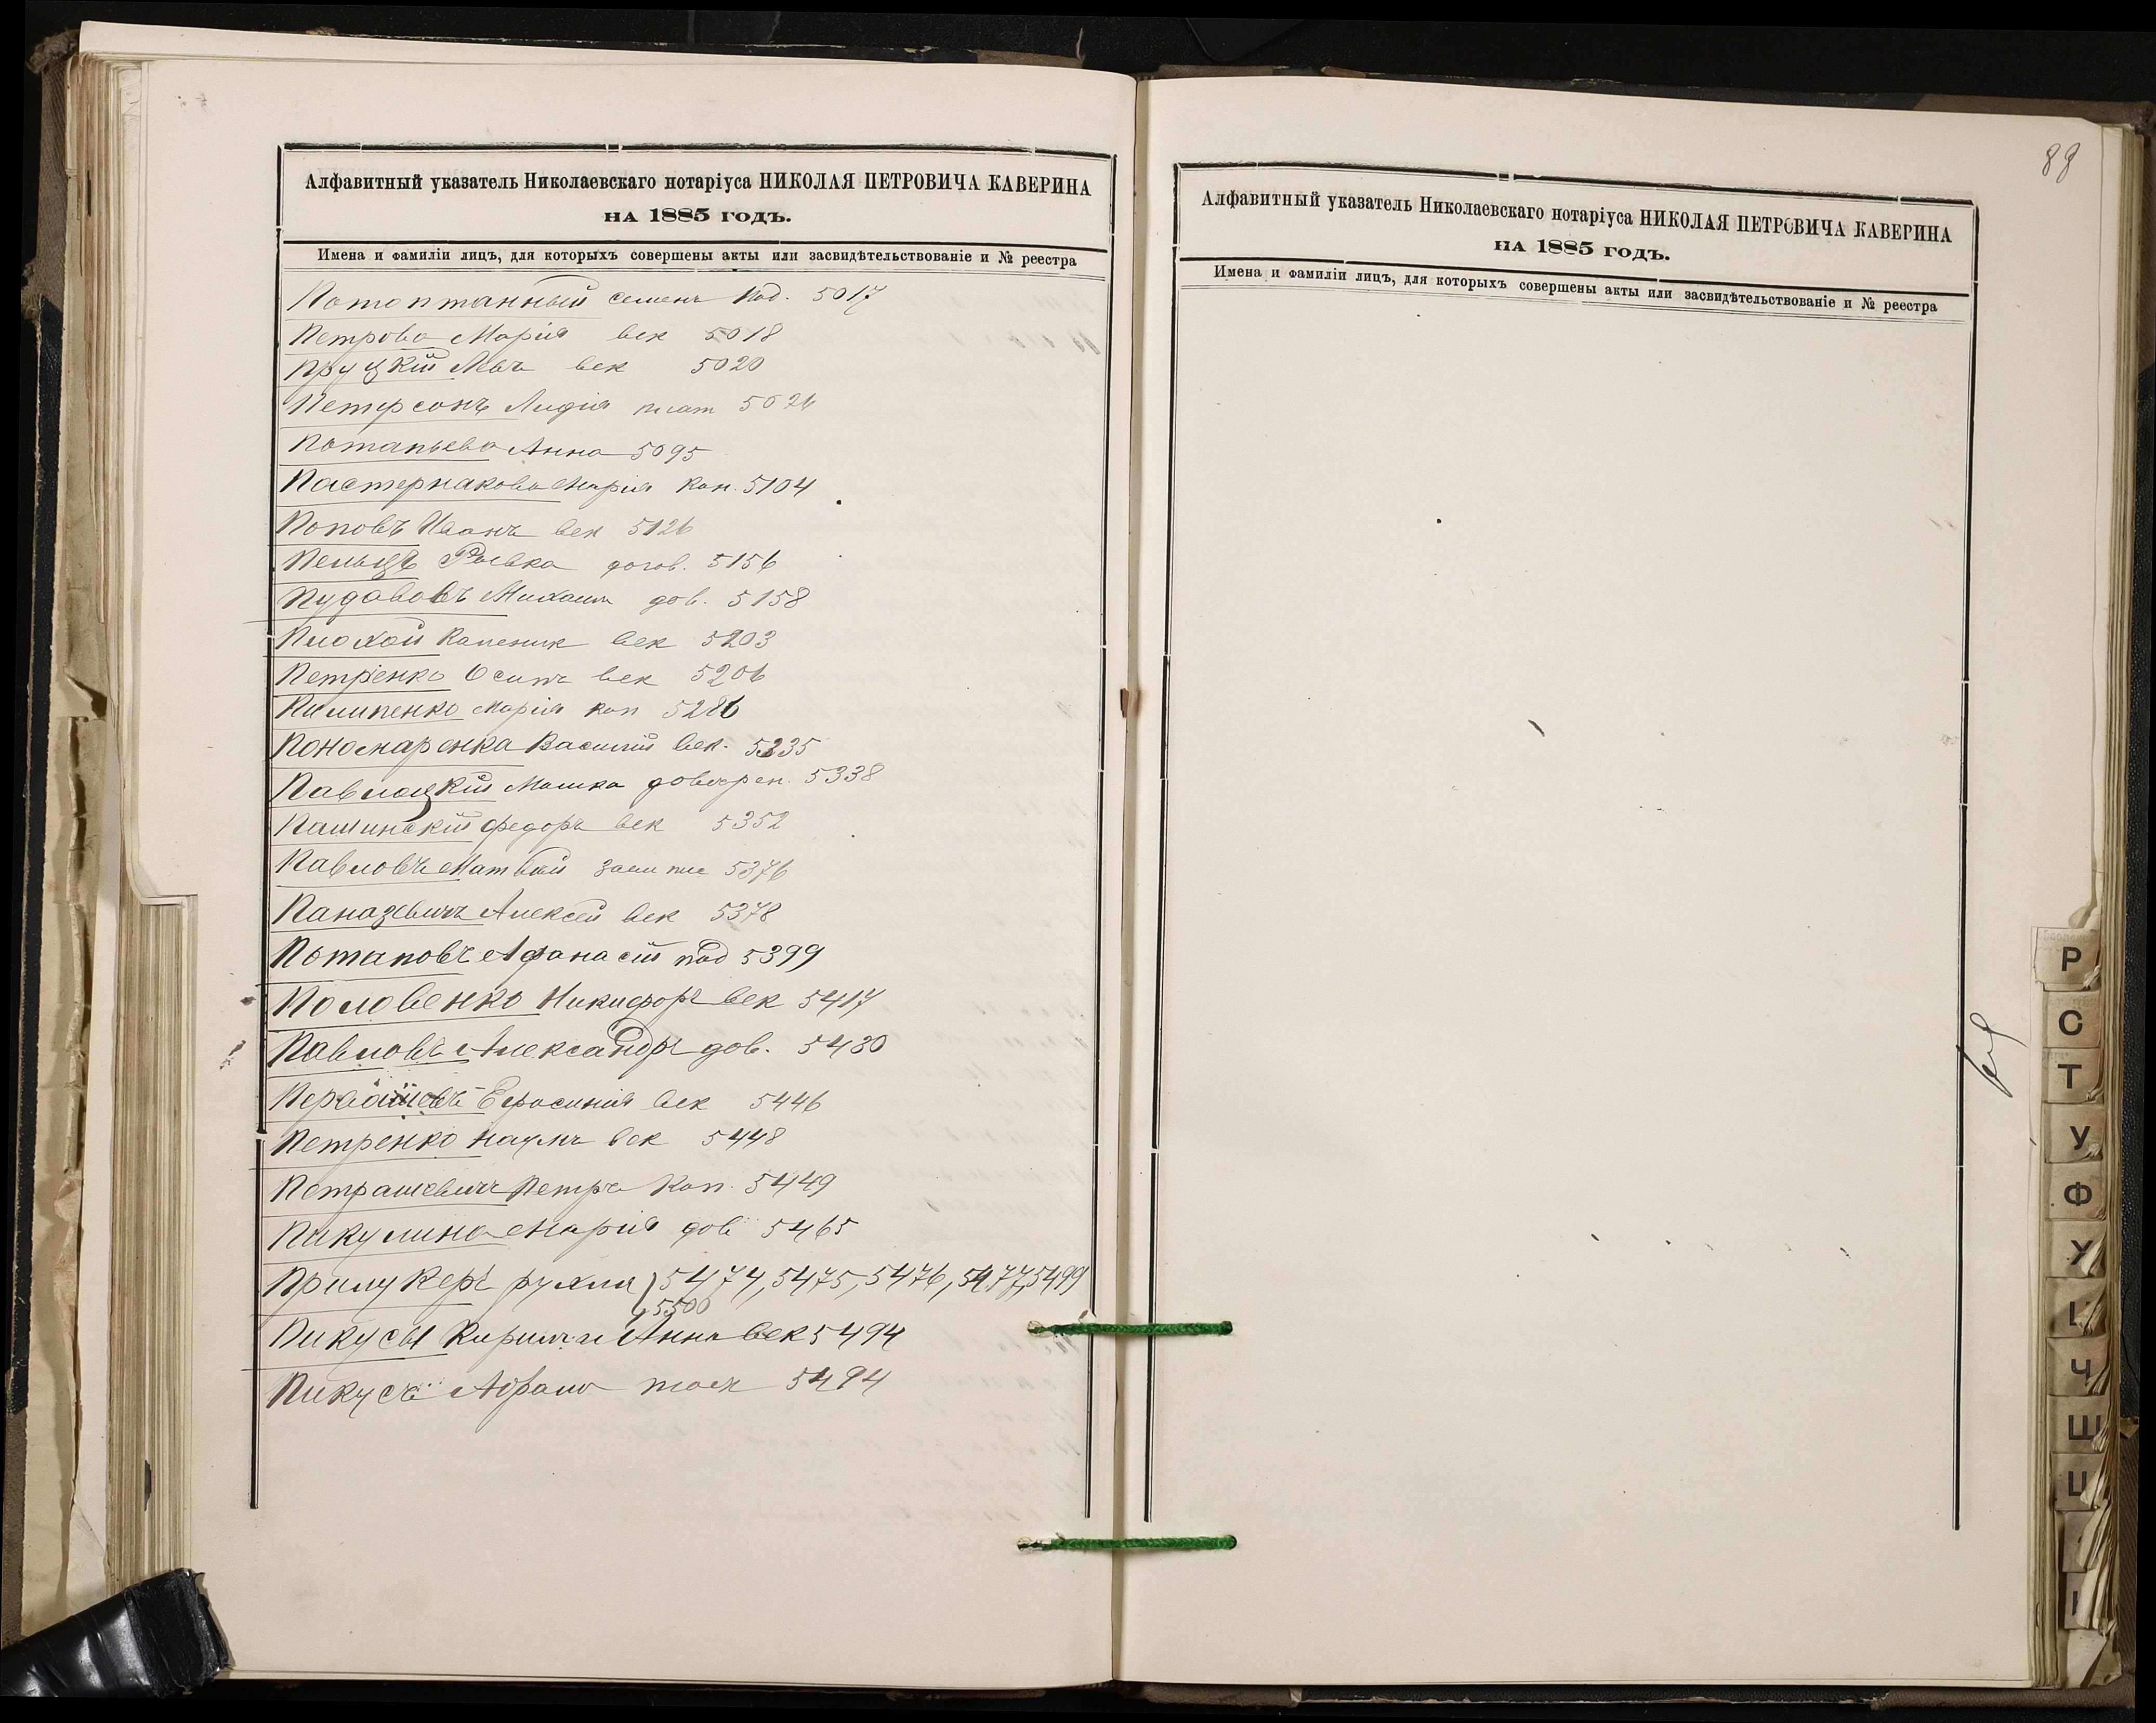 Алфавитный указатель Николаевскаго нотаріуса НИКОЛАЯ ПЕТРОВИЧА КАВЕРИНА
НА 1885 ГОДЪ.
Имена и фамиліи лицъ, для которыхъ совершены акты или засвидѣтельствованіе и № реестра
Потоптанный Семенъ под. 5017
Петрова Марія век 5018
Пруцкій Левъ век 5020
Петерсонъ Лидія плат 5026
Потапьева Анна 5095
Пастернакова Марія коп. 5104
Поповъ Иванъ век 5126
Пельцъ Ревка догов. 5156
Пудавовъ Михаилъ дов. 5158
Плохой век 5203
Петренко Осипъ век 5206
Пилипенко Марія коп 5286
Пономаренка Василій век. 5335
Павлоцкій Мошка доверен. 5338
Пашинскій Федоръ век 5352
Павловъ Матвѣй 5376
Паназевичъ Алексѣй век 5378
Потаповъ Афанасій под 5399
Половенко Никифоръ век 5417
Павловъ Александръ дов. 5430
век 5446
Петренко Наумъ век 5448
Петрашевичъ Петръ коп. 5449
Пикулина Марія дов 5465
Прилукеръ Рухля 5474, 5475, 5476, 5477, 5499
5500
Пикусы Кирилъ и Анна век 5494
Пикусъ 5494
88
Алфавитный указатель Николаевскаго нотаріуса НИКОЛАЯ ПЕТРОВИЧА КАВЕРИНА
НА 1885 ГОДЪ.
Имена и фамиліи лицъ, для которыхъ совершены акты или засвидѣтельствованіе и № реестра
Р
С
Т
У
Ф
Ч
Ш